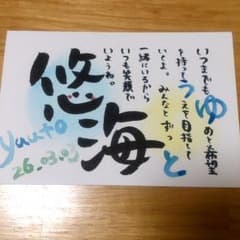 いつまでもゆめと希望
を持ってうえを目指して
いくよ。みんなとずっ
と
一緒にいるから
いつも笑顔で
いようね。
悠海
yuuto
26_03.03